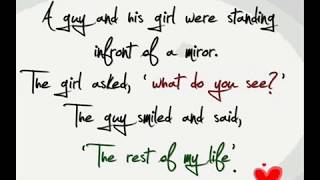 A guy and his girl were standing
infront of a miror.
The girl asked, 'what do you see?'
The guy smiled and said,
'The rest of my life'.